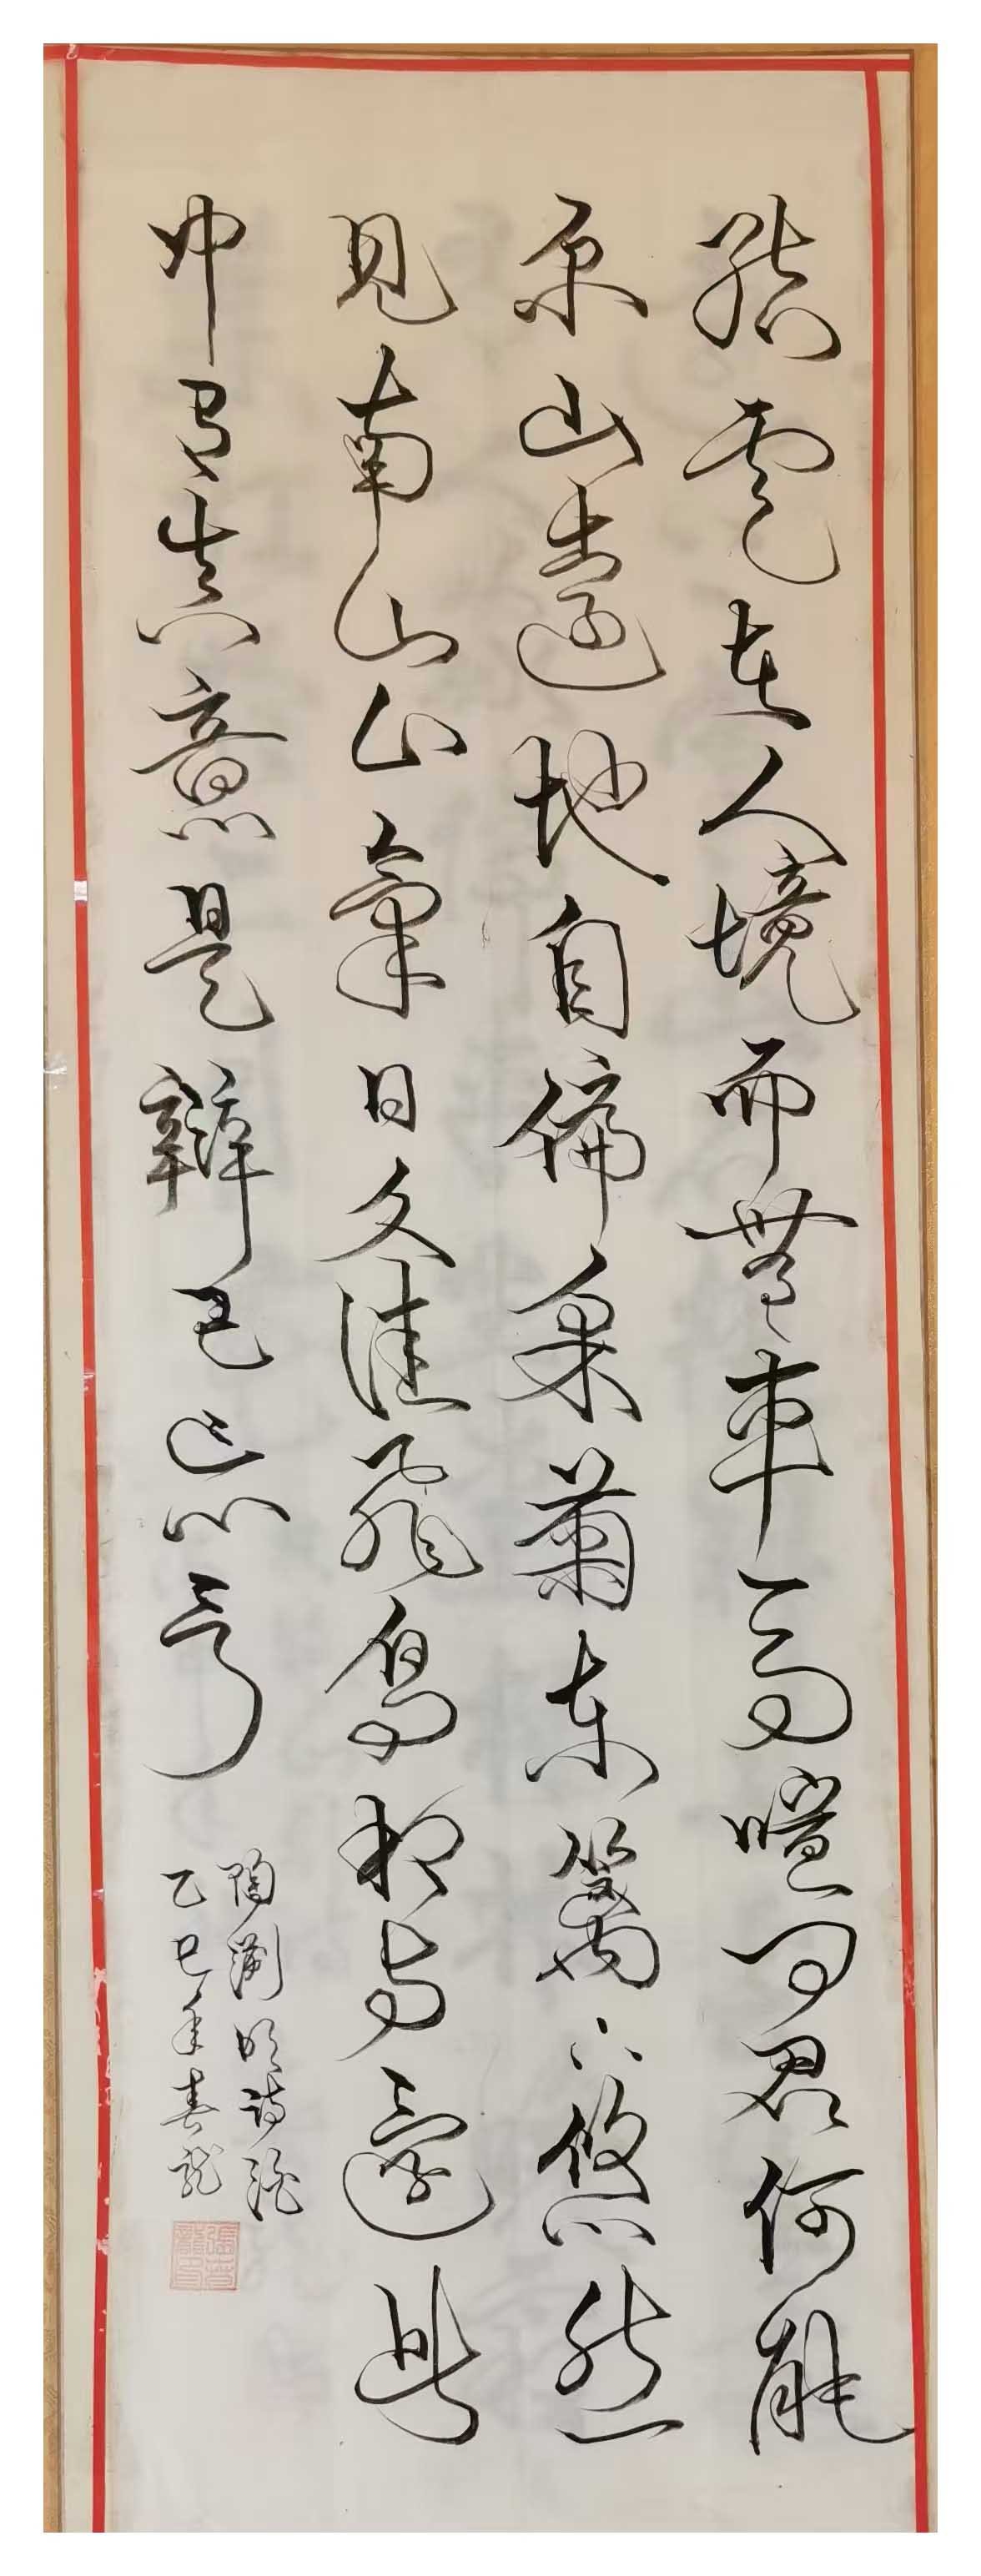 結廬在人境而無車馬喧問君何能
心遠地自偏采菊東籬下悠然
見南山山氣日夕佳飛鳥相與還此
中有真意是辨已忘言
陶淵明詩
乙巳年春龍